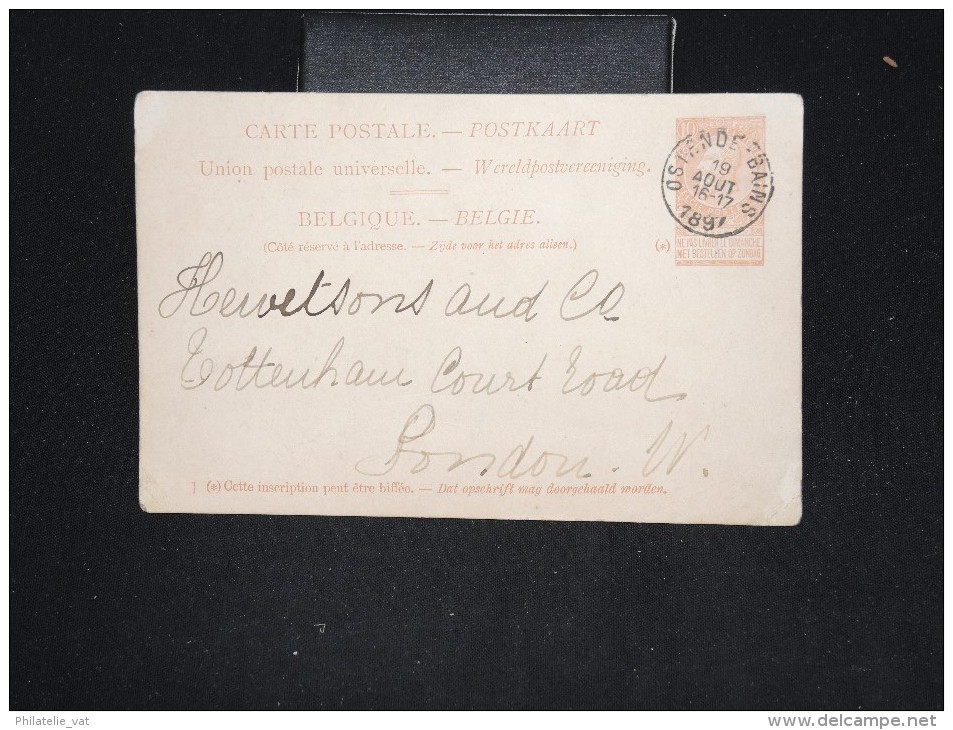 CARTE POSTALE. — POSTKAART
Union postale universelle. — Wereldpostvereeniging.
BELGIQUE. — BELGIE.
(Côté réservé à l'adresse. — Zijde voor het adres alleen.)
(*)
10
OSTENDE-BAINS
19
AOUT
16-17
1897
NE PAS LIVRER LE DIMANCHE
NIET BESTELLEN OP ZONDAG
Hewetsons and Co
Tottenham Court Road
London. W.
(*) Cette inscription peut être biffée. — Dat opschrift mag doorgehaald worden.
Philatelie_vat
www.delcampe.net